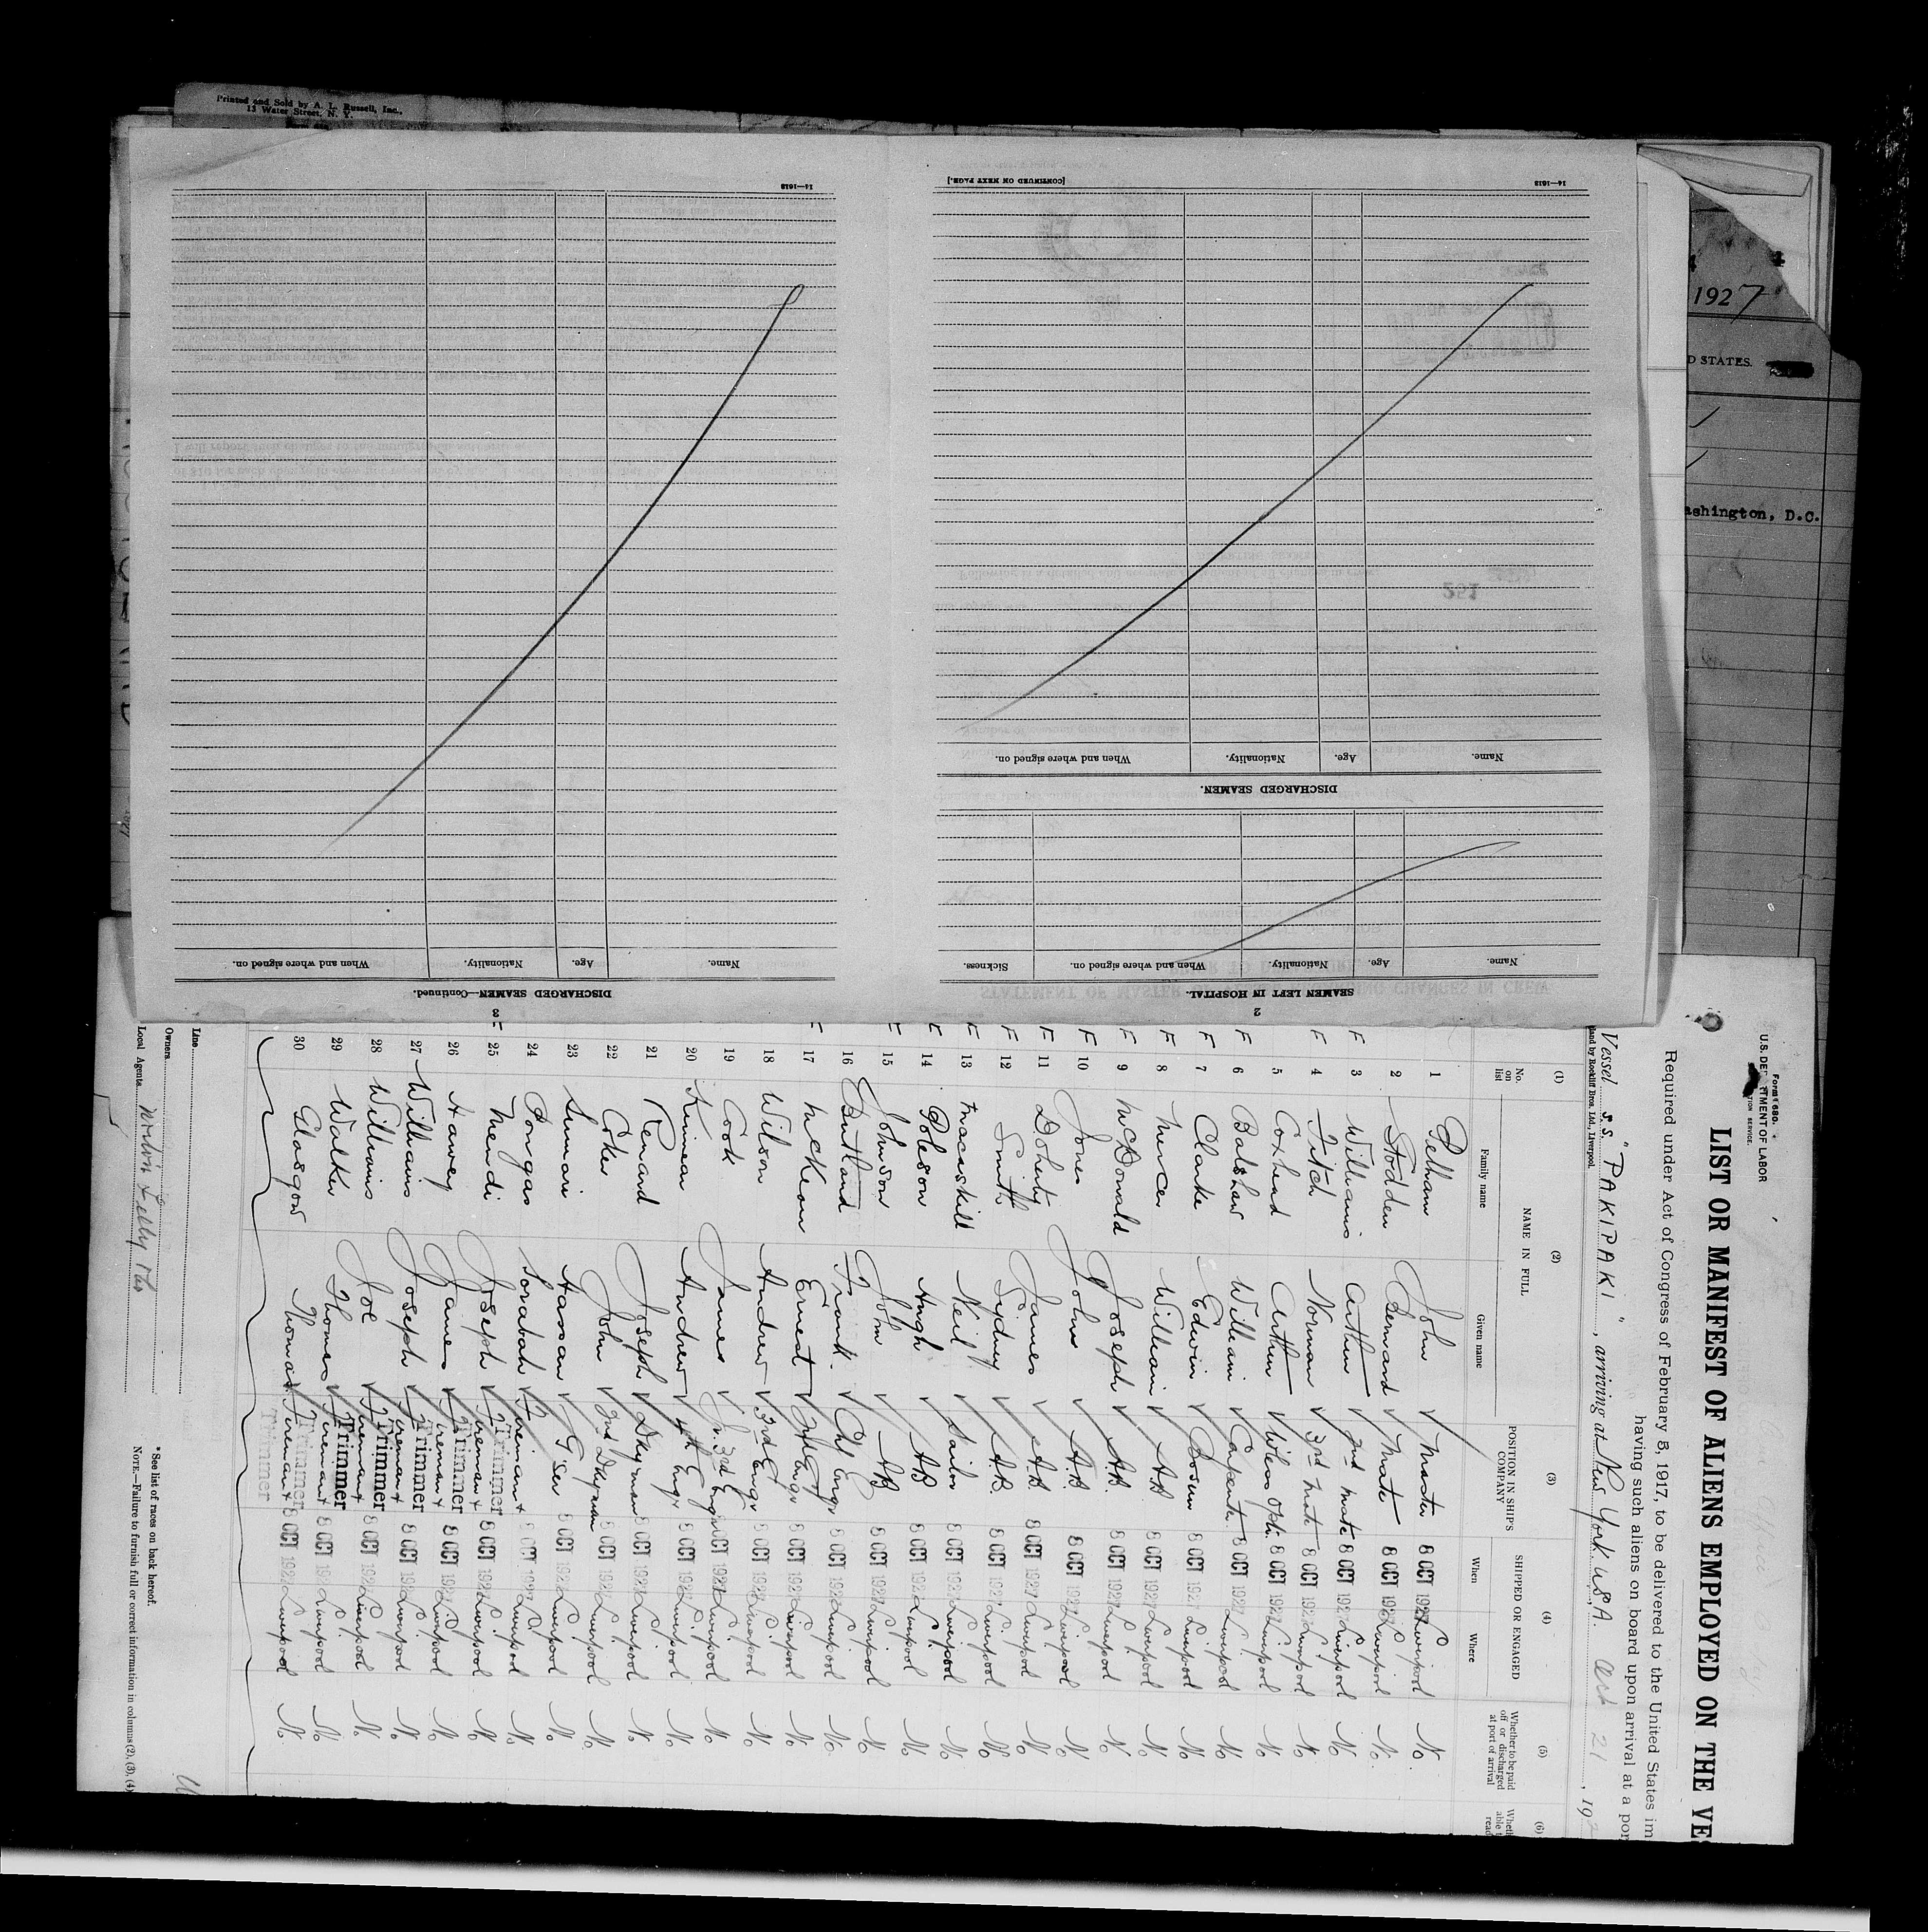 Printed and Sold by A. L. Russell, Inc.,
13 Water Street, N. Y.
14—1613
[CONTINUED ON NEXT PAGE.]
14—1613
1927
D STATES.
ashington, D.C.
When and where signed on.
Nationality.
Age.
Name.
DISCHARGED SEAMEN.
When and where signed on.
Nationality.
Age.
Name.
DISCHARGED SEAMEN—Continued.
Sickness.
When and where signed on.
Nationality.
Age.
Name.
SEAMEN LEFT IN HOSPITAL.
2
Form 680.
U.S. DEPARTMENT OF LABOR
LIST OR MANIFEST OF ALIENS EMPLOYED ON THE VE
Required under Act of Congress of February 8, 1917, to be delivered to the United States im
having such aliens on board upon arrival at a por
Vessel S.S. "PAKIPAKI", arriving at New York USA. Oct 21, 192
and by Rockliff Bros. Ltd., Liverpool.
(1) (2) (3) (4) (5) (6)
No. on list
NAME IN FULL
Family name Given name
POSITION IN SHIP'S COMPANY
SHIPPED OR ENGAGED
When Where
Whether to be paid off or discharged at port of arrival
1 Pelham John Master 8 OCT 1927 Liverpool No.
F 2 Stodden Bernard Mate 8 OCT 1927 Liverpool No.
F 3 Williams Arthur 2nd Mate 8 OCT 1927 Liverpool No
F 4 Fitch Norman 3rd Mate 8 OCT 1927 Liverpool No
5 Coxhead Arthur W'less Optr 8 OCT 1927 Liverpool No
F 6 Balshaw William Carpenter 8 OCT 1927 Liverpool No
F 7 Clarke Edwin Bosun 8 OCT 1927 Liverpool No
F 8 Mercer William AB 8 OCT 1927 Liverpool No
F 9 McDonald Joseph AB 8 OCT 1927 Liverpool No
F 10 Jones John AB 8 OCT 1927 Liverpool No
F 11 Doherty James AB 8 OCT 1927 Liverpool No
F 12 Smith Sydney AB 8 OCT 1927 Liverpool No
F 13 Macaskill Neil Sailor 8 OCT 1927 Liverpool No
F 14 Poleson Hugh AB 8 OCT 1927 Liverpool No
F 15 Johnson John AB 8 OCT 1927 Liverpool No
16 Butland Frank Chf Engr 8 OCT 1927 Liverpool No
F 17 McKeon Ernest 2nd Engr 8 OCT 1927 Liverpool No
18 Wilson Andrew 3rd Engr 8 OCT 1927 Liverpool No
19 Cook James Jn. 3rd Engr 8 OCT 1927 Liverpool No
20 Kinnean Andrew 4th Engr 8 OCT 1927 Liverpool No
21 Renard Joseph Dkyman 8 OCT 1927 Liverpool No
22 Coker John 2nd Dkyman 8 OCT 1927 Liverpool No
23 Sumari Hassan G'ser 8 OCT 1927 Liverpool No
24 Dongas Sorabah Fireman & Trimmer 8 OCT 1927 Liverpool No
25 Mendi Joseph Fireman & Trimmer 8 OCT 1927 Liverpool No
26 Harvey James Fireman & Trimmer 8 OCT 1927 Liverpool No
27 Williams Joseph Fireman & Trimmer 8 OCT 1927 Liverpool No
28 Williams Joe Fireman & Trimmer 8 OCT 1927 Liverpool No
29 Walker Thomas Fireman & Trimmer 8 OCT 1927 Liverpool No
30 Glasgow Thomas Fireman & Trimmer 8 OCT 1927 Liverpool No
Line
Owners
Local Agents Norton Lilly & Co
*See list of races on back hereof.
NOTE.—Failure to furnish full or correct information in columns (2), (3), (4)